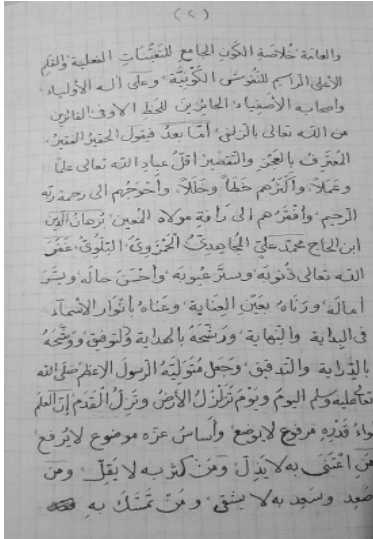 (٢)
والعامة خُلاصَةِ الكَونِ الجامِعِ للتَعَيُّنَاتِ الفعلية والقلم
الأعلى الراسِمِ للنقوشِ الكَوْنِيَّةِ، وعلى آله الأولياء
وأصحابه الأصفياء، الحائزينَ للحظ الأوفى الفائزين
من الله تعالى بالزلفى، أمّا بَعدُ فيقول الحقيرُ الفقيرُ
المُعترفُ بالعجزِ والتقصيرِ أقلُّ عبادِ الله تعالى علمًا
وعَمَلًا، وأكثرُهم خَطَأً وخَلَلًا، وأحوَجُهم الى رحمة ربِّه
الرحيم، وأفقرُهم الى رأفةِ مولاه المُعين، بُرهانُ الدين
ابن الحاج محمد علي المُجاهِديُّ الحَمزَوِيُّ البَلَوِيُّ، غَفَرَ
الله تعالى ذُنوبَهُ، وستَر عُيوبَه، وأحْسَنَ حالَه، ويسَّرَ
آمالَه، ورَنَاهُ بعَيْنِ العِنايةِ، وعَنَاهُ بأنوارِ الأسماء
في البداية والنهاية، ورَشَّحَهُ بالهداية والتوفيق، ووَشَّحَهُ
بالدِّرايةِ والتدقيق، وجَعلَ مُتولِّيَهُ الرسولَ الأعظم صلى الله
تعالى عليه وسلم اليومَ ويَوْمَ تَزَلزَلُ الأرضُ وتَزِلُّ القَدَمُ، إنّ العلمَ
لواءُ قَدْرِهِ مرفوعٌ لا يوضع، وأساسُ عزّه موضوع لا يُرفع
مَنِ اعْتَنَى به لا يَذِلّ، ومَنْ كثُرَ به لا يَقِلّ، ومَنْ
صَعِدَ وسَعِدَ به لا يشقى، ومَنْ تَمَسَّكَ به